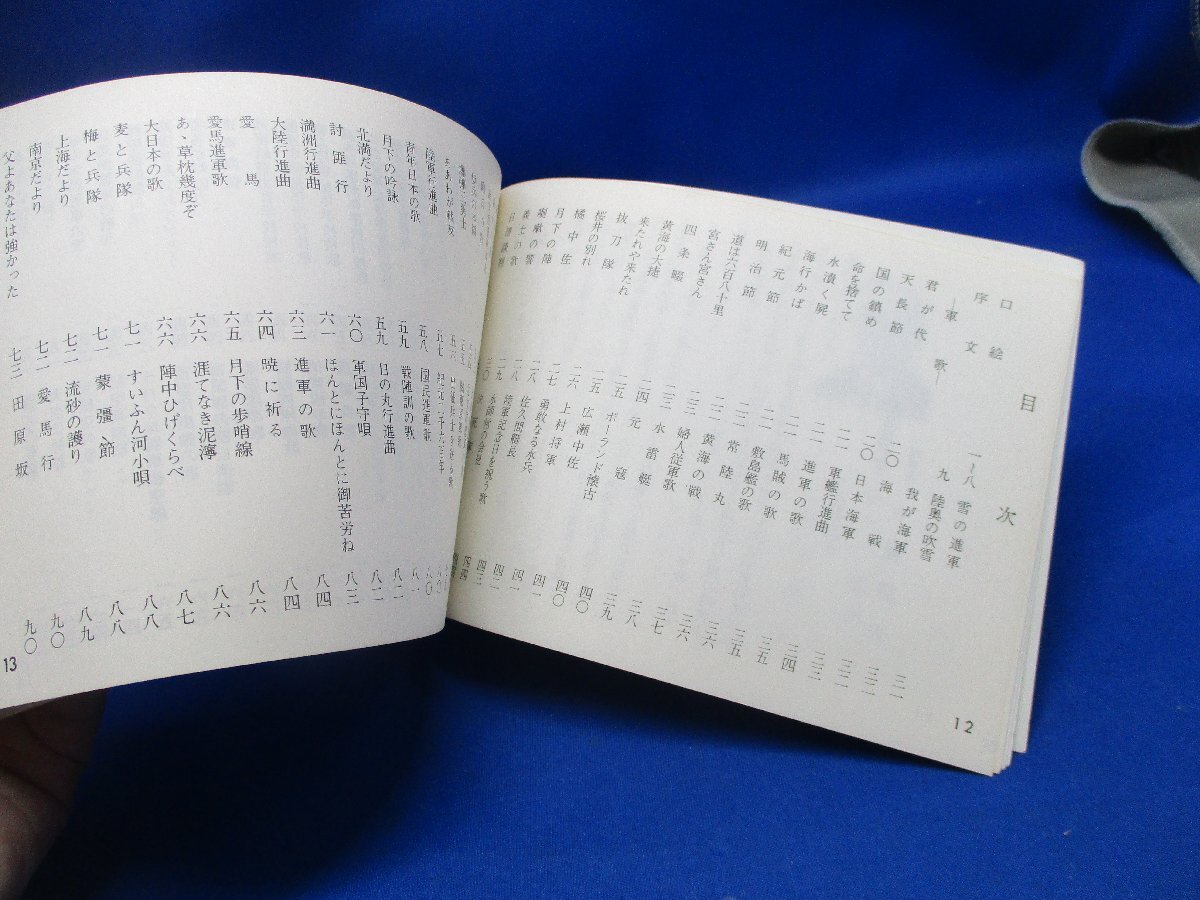 目次
口絵
序文
―軍歌―
君が代
天長節
国の鎮め
命を捨てて
水漬く屍
海行かば
紀元節
明治節
道は六百八十里
宮さん宮さん
四条畷
黄海の大捷
来たれや来たれ
抜刀隊
桜井の別れ
橘中佐
月下の陣
一〜八
九
二〇
二〇
二一
二一
二四
二五
二五
二六
二七
二八
二九
三〇
雪の進軍
陸奥の吹雪
我が海軍
海戦
日本海軍
軍艦行進曲
進軍の歌
馬賊の歌
敷島艦の歌
常陸丸
黄海の戦
婦人従軍歌
水雷艇
元寇
ポーランド懐古
広瀬中佐
上村将軍
勇敢なる水兵
佐久間艇長
陸軍記念日を祝う歌
水師営の会見
三一
三二
三二
三三
三四
三五
三五
三六
三六
三七
三八
三九
四〇
四〇
四一
四一
四二
四三
四四
12
ああわが戦友
青年日本の歌
月下の吟詠
北満だより
討匪行
満洲行進曲
大陸行進曲
愛馬
愛馬進軍歌
あゝ草枕幾度ぞ
大日本の歌
麦と兵隊
梅と兵隊
上海だより
南京だより
父よあなたは強かった
五六
五七
五八
五九
五九
六〇
六一
六三
六四
六五
六六
六六
七一
七一
七二
七二
七三
国民進軍歌
戦陣訓の歌
日の丸行進曲
軍国子守唄
ほんとにほんとに御苦労ね
進軍の歌
暁に祈る
月下の歩哨線
涯てなき泥濘
陣中ひげくらべ
すいふん河小唄
蒙彊節
流砂の護り
愛馬行
田原坂
八〇
八一
八二
八二
八三
八四
八四
八六
八六
八七
八八
八八
八九
九〇
九〇
13